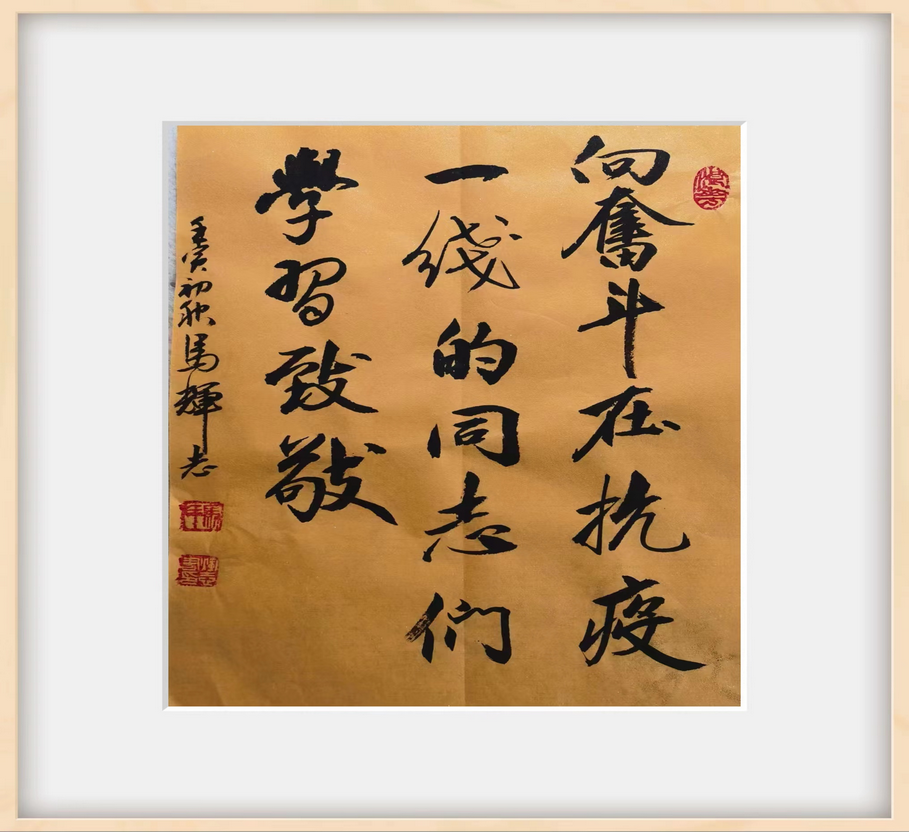 向奮斗在抗疫
一线的同志们
學習致敬
壬寅初秋馬輝志